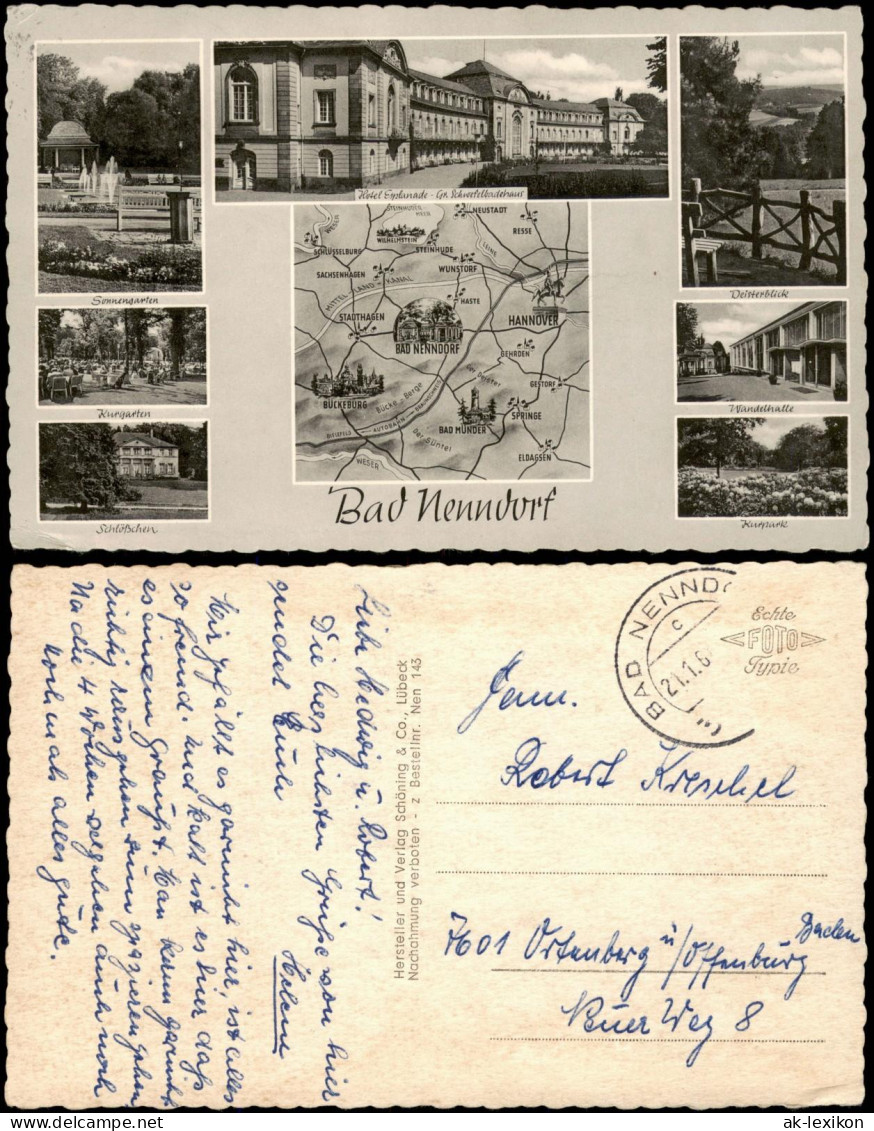 Sonnengarten
Hotel Esplanade - Gr. Schwefelbadehaus
Deisterblick
Kurgarten
Wandelhalle
Schlößchen
Kurpark
WESER
STEINHUDER
MEER
WILHELMSTEIN
NEUSTADT
RESSE
SCHLÜSSELBURG
STEINHUDE
LEINE
SACHSENHAGEN
WUNSTORF
MITTEL-LAND-KANAL
HASTE
STADTHAGEN
HANNOVER
BAD NENNDORF
GEHRDEN
Der Deister
GESTORF
BÜCKEBURG
Bücke-Berge
SPRINGE
BAD MÜNDER
AUTOBAHN
BIELEFELD
Der Süntel
WESER
ELDAGSEN
Bad Nenndorf
Liebe Hedwig u. Robert!
Die herzlichsten Grüße von hier
sendet Euch Helene
Mir gefällt es garnicht hier, ist alles
so fremd. Und kalt ist es hier daß
es einem graußt. Man kann garnicht
richtig rausgehen zum spazierengehn
Na die 4 Wochen vergehen auch noch
Nochmals alles gute.
Hersteller und Verlag Schöning & Co., Lübeck
Nachahmung verboten - z Bestellnr. Nen 143
BAD NENNDO
c
21.1.6
Echte
FOTO
Typie
Fam.
Robert Kreschel
7601 Ortenberg u/Offenburg Baden
Neuer Weg 8
ak-lexikon.com